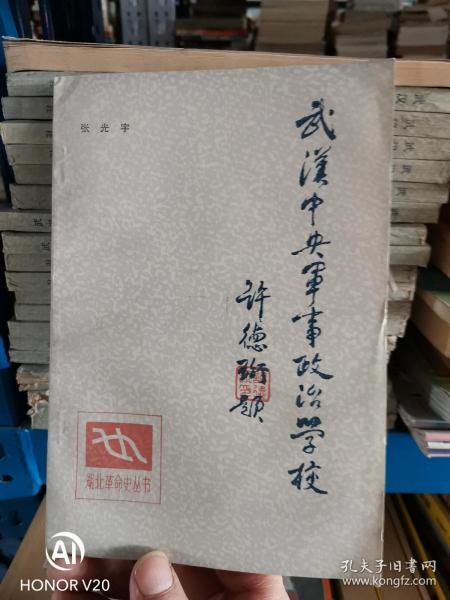 张光宇
武漢中央軍事政治學校
许德珩題
湖北革命史丛书
AI
HONOR V20
孔夫子旧书网
www.kongfz.com